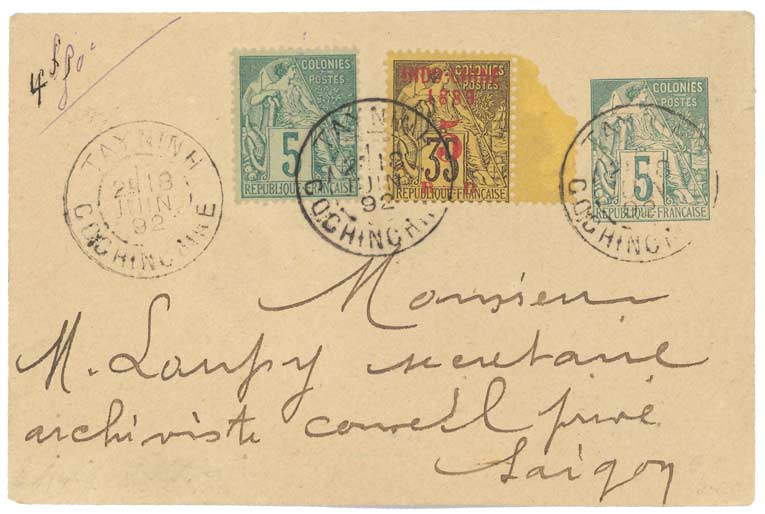 COLONIES
POSTES
5
RÉPUBLIQUE FRANÇAISE
COLONIES
POSTES
INDO-CHINE
1889
5
35
R D
RÉPUBLIQUE FRANÇAISE
COLONIES
POSTES
5
RÉPUBLIQUE FRANÇAISE
TAY NINH
2E 18
JUIN
92
COCHINCHINE
TAY NINH
18
JUIN
92
COCHINCHINE
Monsieur
M. Loupy secretaire
archiviste conseil privé
Saigon